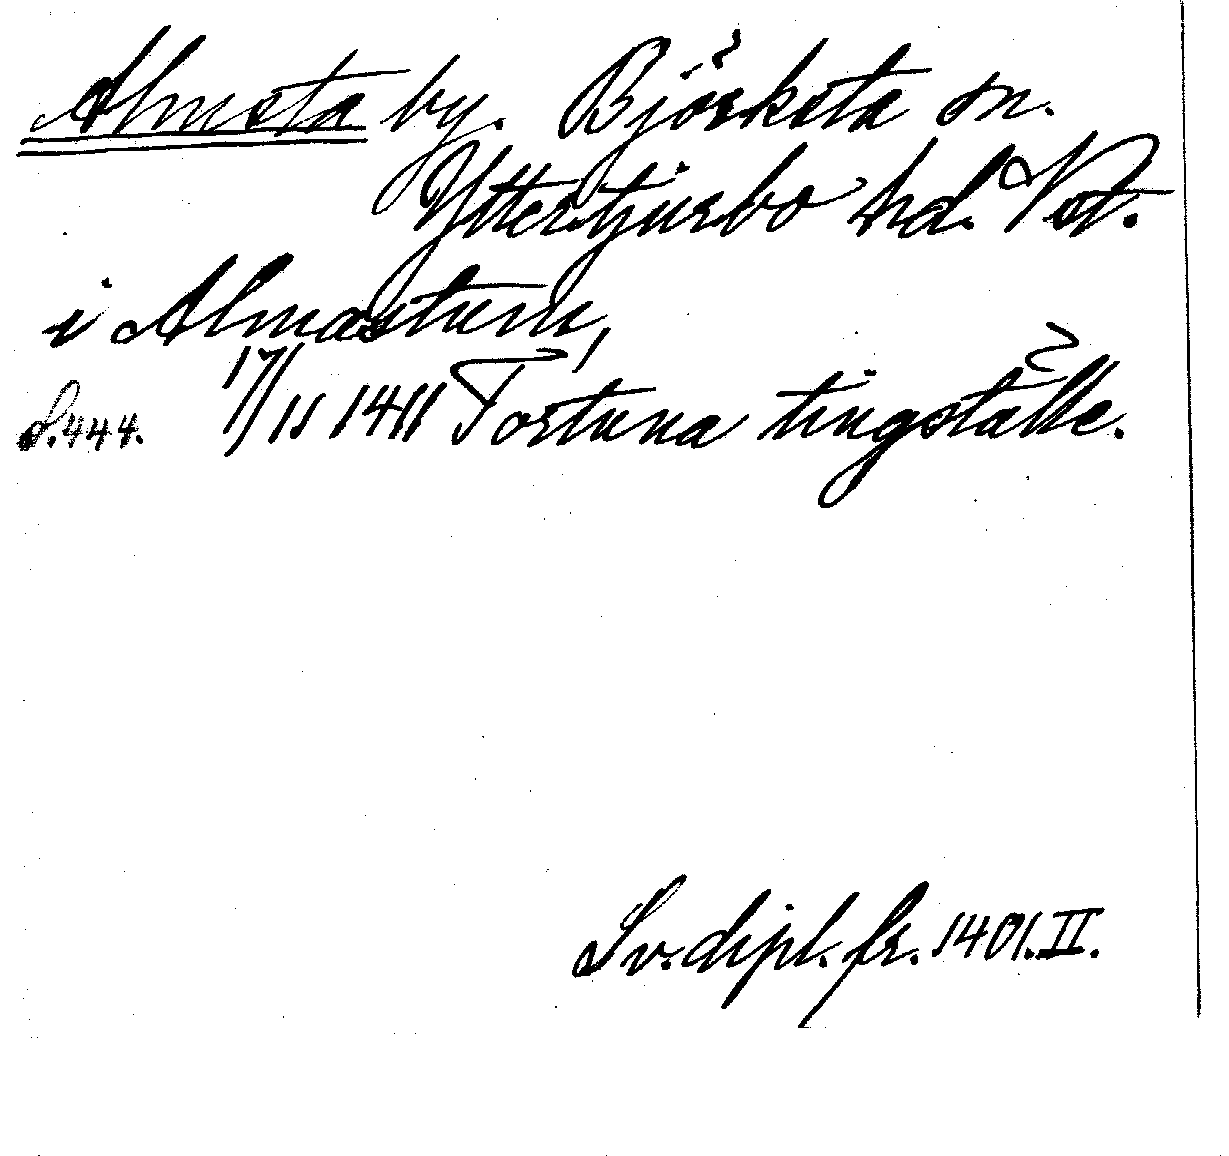 Almsta by. Björksta sn.
Yttertjurbo hd. Vst.
i Almastum,
S. 444. 17/11 1411 Tortuna tingställe.
Sv. dipl. fr. 1401. II.